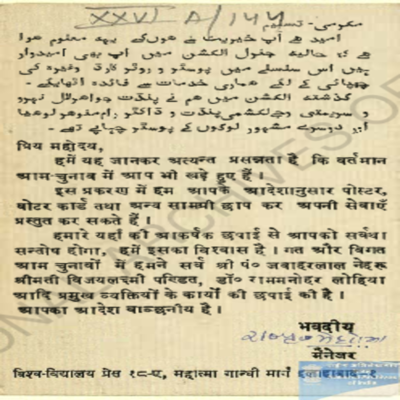 XXVI A/144
مکرمی - تسلیم
امید ہے آپ خیریت سے ہوں گے یہہ معلوم ہوا
ہے کہ حالیہ جنرل الکشن میں آپ بھی امیدوار
ہیں اس سلسلے میں پوسٹر و ووٹر کارڈ وغیرہ کی
چھپائی کے لئے ہماری خدمات سے فائدہ اٹھایئے -
گذشتہ الکشن میں ہم نے پنڈت جواہر لال نہرو
و سریمتی وجے لکشمی پنڈت و ڈاکٹر رام منوہر لوہیا
اور دوسرے مشہور لوگوں کے پوسٹر چھاپے تھے -
प्रिय महोदय,
हमें यह जानकर अत्यन्त प्रसन्नता है कि वर्तमान
आम-चुनाव में आप भी खड़े हुए हैं ।
इस प्रकरण में हम आपके आदेशानुसार पोस्टर,
वोटर कार्ड तथा अन्य सामग्री छाप कर अपनी सेवाएँ
प्रस्तुत कर सकते हैं ।
हमारे यहाँ की आकर्षक छपाई से आपको सर्वथा
सन्तोष होगा, हमें इसका विश्वास है । गत और विगत
आम चुनावों में हमने सर्व श्री पं० जवाहरलाल नेहरू
श्रीमती विजयलक्ष्मी पण्डित, डॉ० राममनोहर लोहिया
आदि प्रमुख व्यक्तियों के कार्यों की छपाई की है ।
आपका आदेश वाञ्छनीय है ।
भवदीय
मैनेजर
विश्व-विद्यालय प्रेस १८-ए, महात्मा गान्धी मार्ग इलाहाबाद-१